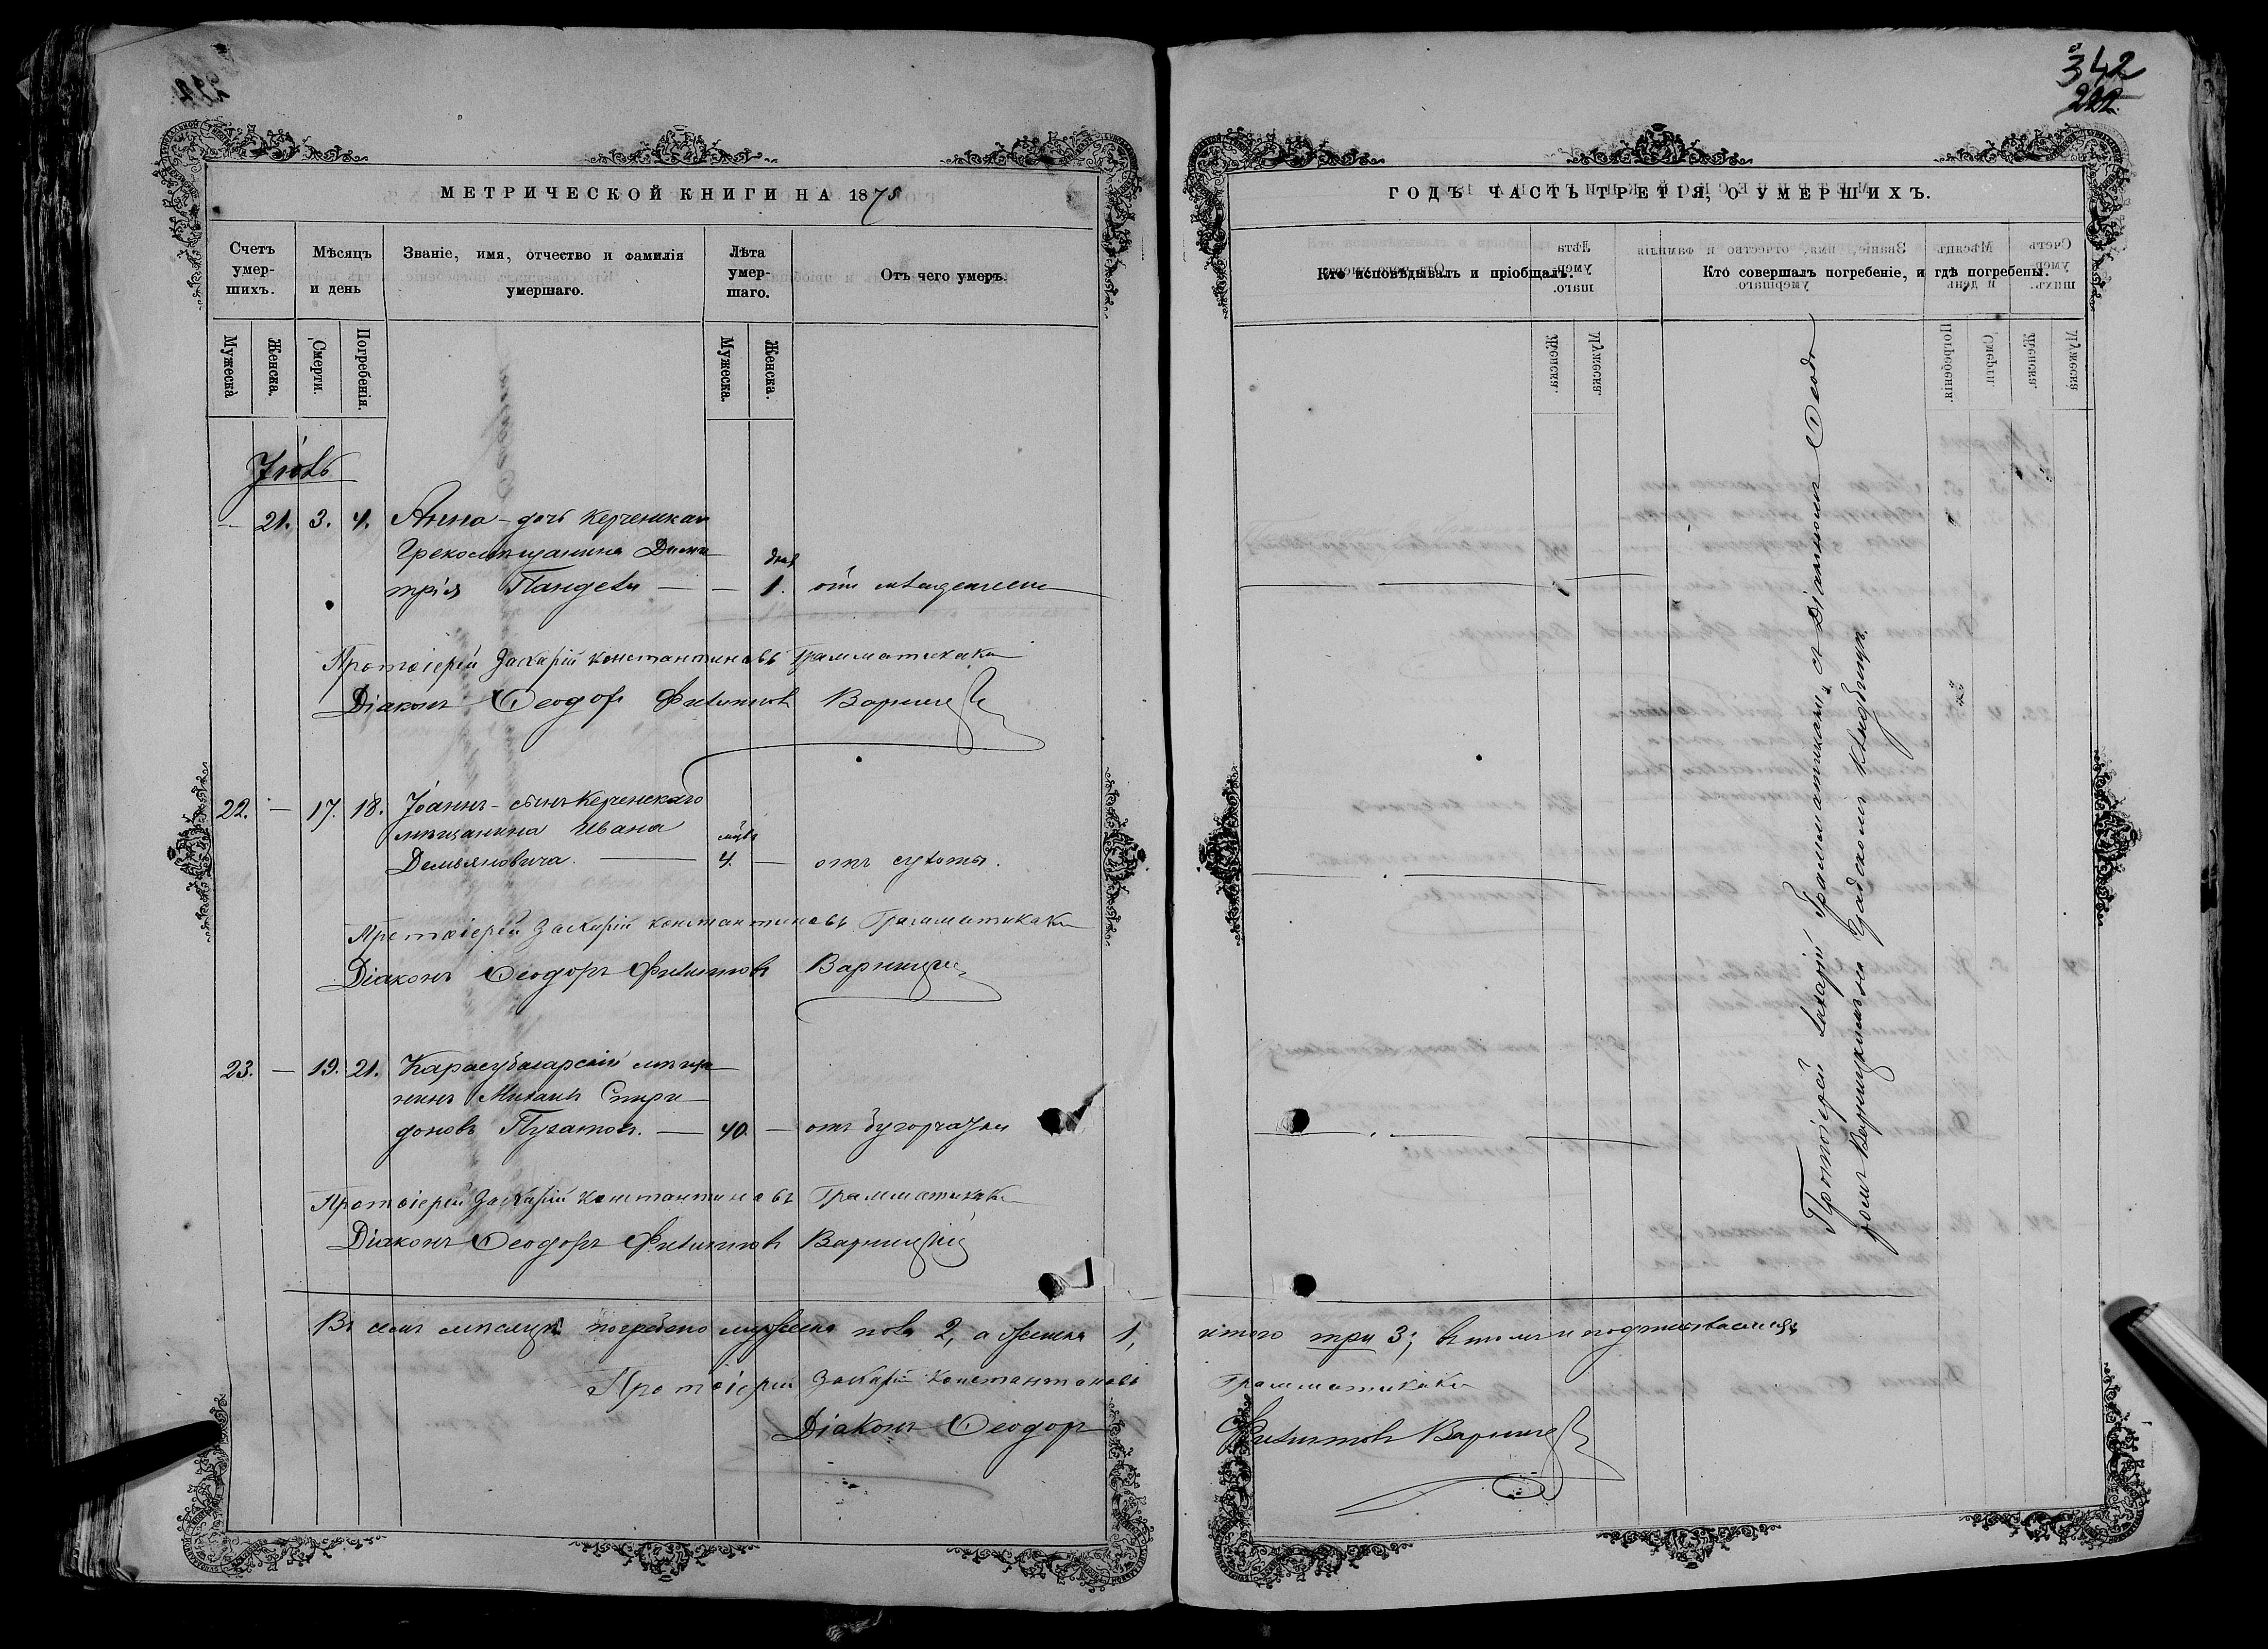 342
222
МЕТРИЧЕСКОЙ КНИГИ НА 1875
Счетъ умер-шихъ.
Мѣсяцъ и день
Званіе, имя, отчество и фамилія умершаго.
Лѣта умер-шаго.
Отъ чего умеръ.
Мужеска
Женска.
Смерти.
Погребенія.
Мужеска.
Женска.
Іюль
— 21. 3. 4. Анна – дочь Керченскаго
Грекомѣщанина Дими
трія — — 1. отъ
Протоіерей Захарій Константиновъ Грамматикаки
Діаконъ Ѳеодоръ Филиповъ Варницкій
22. — 17. 18. Іоаннъ – сынъ Керченскаго
мѣщанина Ивана
Демьяновича. — 4. — отъ сухоты.
Протоіерей Захарій Константиновъ Грамматикаки
Діаконъ Ѳеодоръ Филиповъ Варницкій
23. — 19. 21. Карасубазарскій мѣща
нинъ Михаилъ Спири
доновъ — 40. — отъ бугорчатки
Протоіерей Захарій Константиновъ Грамматикаки
Діаконъ Ѳеодоръ Филиповъ Варницкій
Въ семъ мѣсяцѣ погребено мужеска пола 2, а женска 1,
Протоіерей Захарій Константиновъ
Діаконъ Ѳеодоръ
ГОДЪ ЧАСТЬ ТРЕТІЯ, О УМЕРШИХЪ.
Кто исповѣдывалъ и пріобщалъ.
Кто совершалъ погребеніе, и гдѣ погребены.
Протоіерей Захарій Грамматикаки, съ Діакономъ Ѳеодо
ромъ Варницкимъ на Градскомъ кладбищѣ.
итого три 3; въ томъ и подписываемся
Грамматикаки
Филиповъ Варницкій